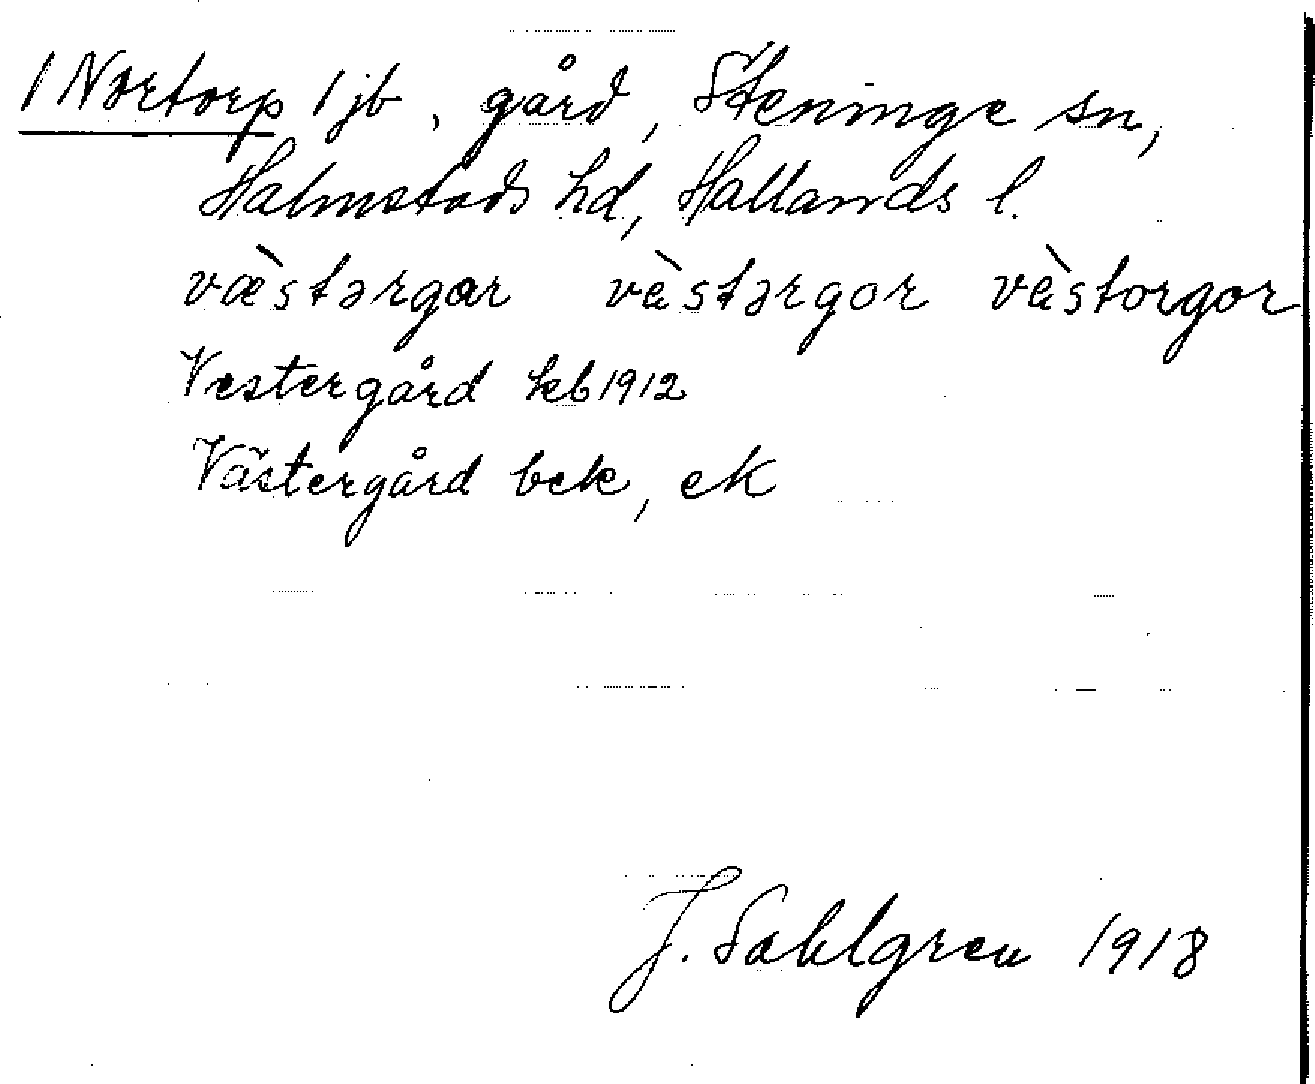 1 Nortorp 1 jb, gård, Steninge sn,
Halmstads hd, Hallands l.
væ̀stərgar vèstərgor vèstorgor
Vestergård kb 1912
Västergård bek, ek
J. Sahlgren 1918